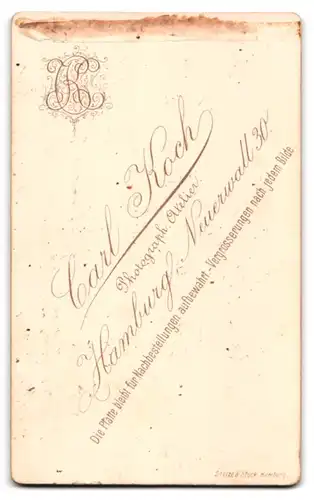 CK
Carl Koch
Photograph. Atelier
Hamburg, Neuerwall 30
Die Platte bleibt für Nachbestellungen aufbewahrt - Vergrösserungen nach jedem Bilde
Hamburg